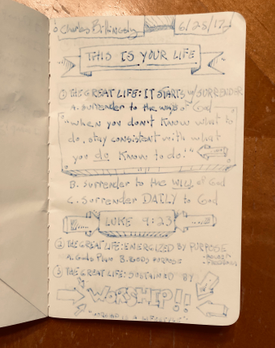 Charles Billingsly 6/25/17
THIS IS YOUR LIFE
① THE GREAT LIFE: IT STARTS w/ SURRENDER
A. Surrender to the ways of God
"when you don't know what to
do, stay consistent with what
you do know to do."
B. Surrender to the will of God
C. Surrender DAILY to God
LUKE 9:23
② THE GREAT LIFE: ENERGIZED BY PURPOSE
A. Gods Plan B.
③ THE GREAT LIFE: SUSTAINED BY
WORSHIP!!